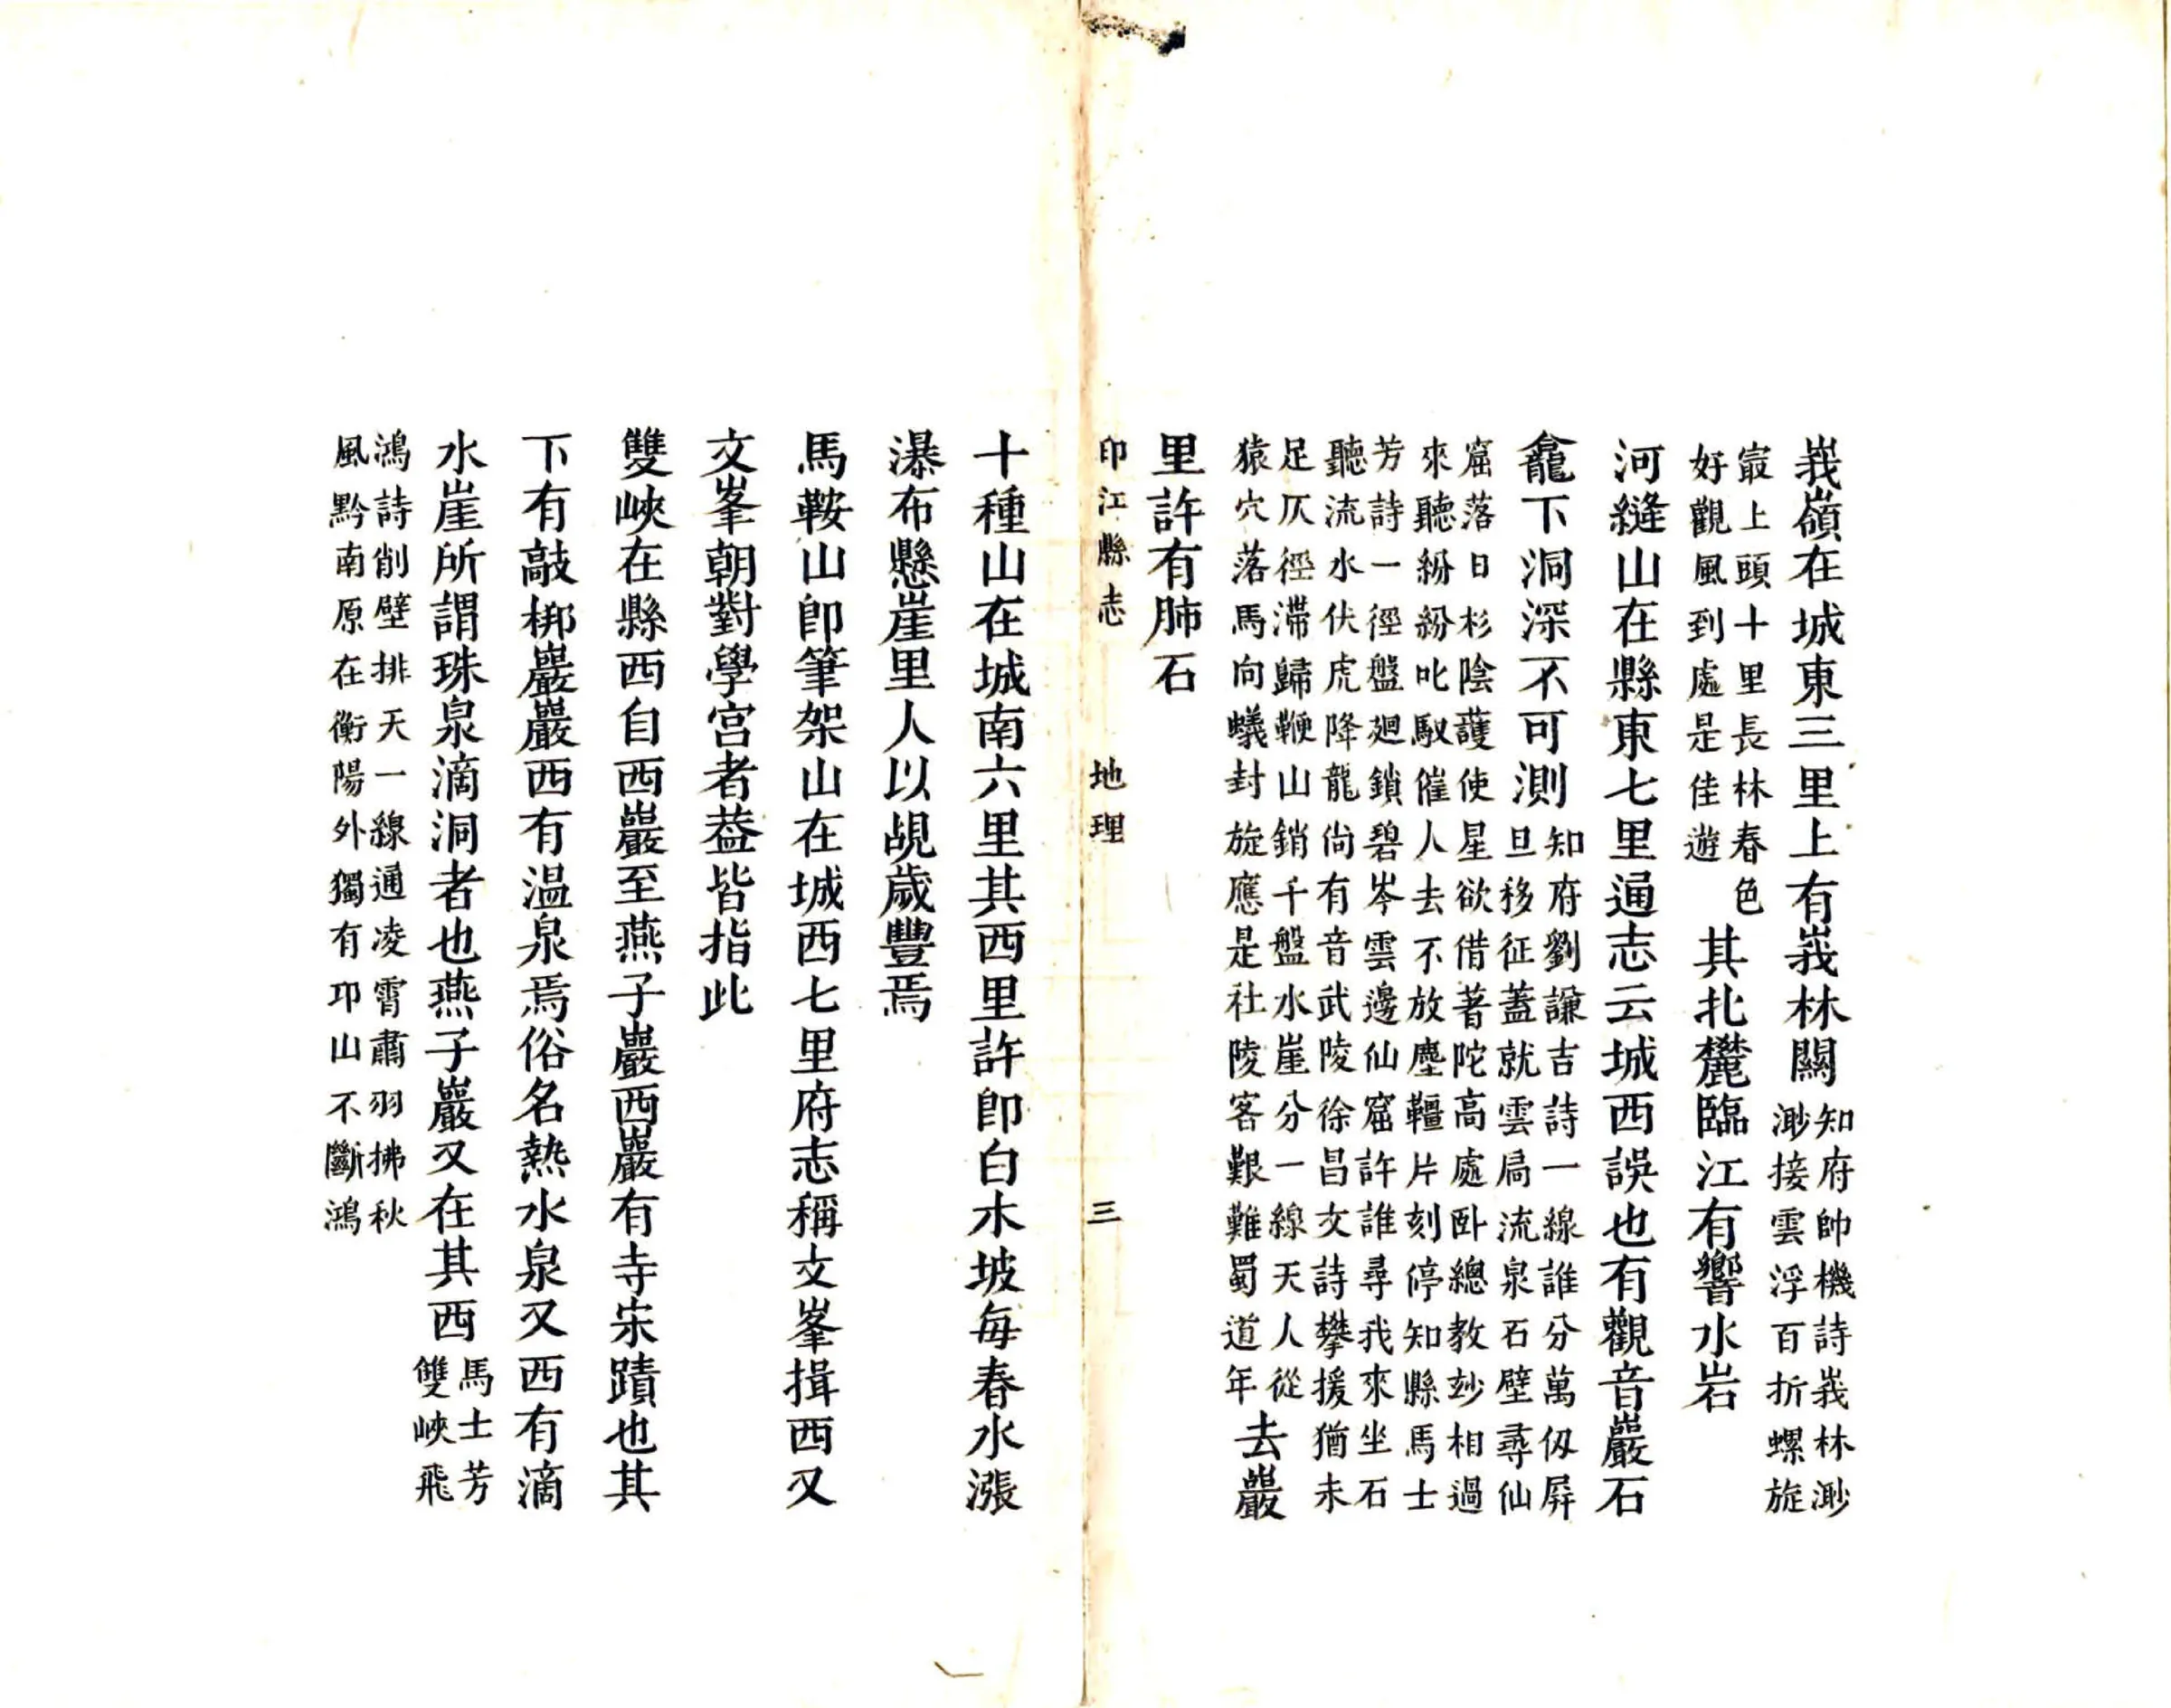 峩嶺在城東三里上有峩林關知府帥機詩峩林渺
渺接雲浮百折螺旋
㝡上頭十里長林春色
好觀風到處是佳遊其北麓臨江有響水岩
河縫山在縣東七里通志云城西誤也有觀音巖石
龕下洞深不可測知府劉謙吉詩一線誰分萬仭屏
旦移征蓋就雲局流泉石壁尋仙
窟落日杉陰護使星欲借著陀高處卧總教玅相過
來聽紛紛叱馭催人去不放塵韁片刻停知縣馬士
芳詩一徑盤廻鎖碧岑雲邊仙窟許誰尋我來坐石
聽流水伏虎降龍尚有音武陵徐昌文詩攀援猶未
足仄徑滯歸鞭山銷千盤水崖分一線天人從
猿穴落馬向蟻封旋應是社陵客艱難蜀道年去巖
里許有肺石
印江縣志 地理 三
十種山在城南六里其西里許卽白木坡每春水漲
瀑布懸崖里人以覘歲豐焉
馬鞍山卽筆架山在城西七里府志稱文峯揖西又
文峯朝對學宮者葢皆指此
雙峽在縣西自西巖至燕子巖西巖有寺宋蹟也其
下有敲梆巖巖西有温泉焉俗名熱水泉又西有滴
水崖所謂珠泉滴洞者也燕子巖又在其西馬士芳
雙峽飛
鴻詩削壁排天一線通凌霄肅羽拂秋
風黔南原在衡陽外獨有卭山不斷鴻